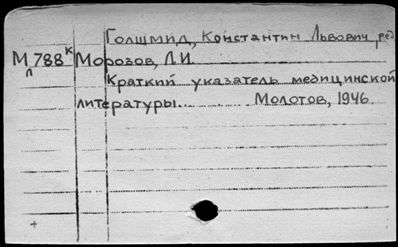 Голшмид, Константин Львович, ред.
М 788 к Морозов, Л.И.
л
Краткий указатель медицинской
литературы... Молотов, 1946.